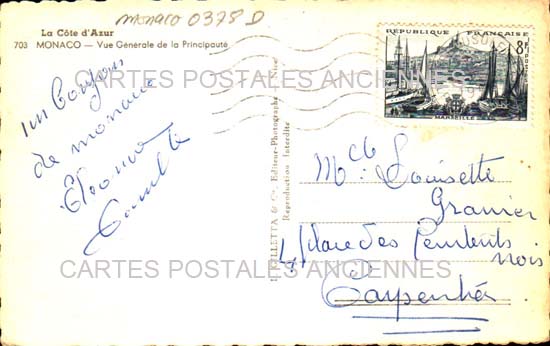 La Côte d'Azur
703 MONACO — Vue Générale de la Principauté
monaco 0378 D
RÉPUBLIQUE FRANÇAISE
8F
POSTES
MARSEILLE
CARTES POSTALES ANCIENNES
un bonjour
de monaco
Mlle Louisette
Granier
4 place des Penitents
noirs
Carpentras
GILLETTA & Cie, Editeur-Photographe, Nice
Reproduction Interdite
CARTES POSTALES ANCIENNES